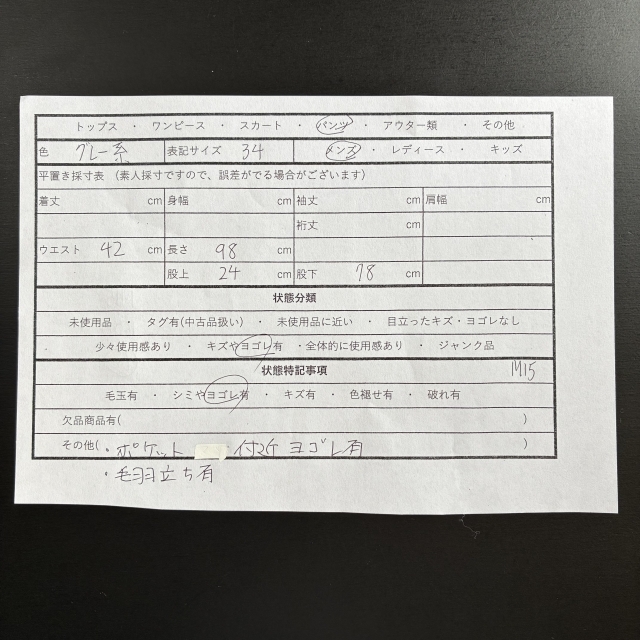 トップス ・ ワンピース ・ スカート ・ パンツ ・ アウター類 ・ その他
色 グレー系 表記サイズ 34 メンズ ・ レディース ・ キッズ
平置き採寸表 (素人採寸ですので、誤差がでる場合がございます)
着丈 cm 身幅 cm 袖丈 cm 肩幅 cm
裄丈 cm
ウエスト 42 cm 長さ 98 cm
股上 24 cm 股下 78 cm
状態分類
未使用品 ・ タグ有(中古品扱い) ・ 未使用品に近い ・ 目立ったキズ・ヨゴレなし
少々使用感あり ・ キズやヨゴレ有 ・全体的に使用感あり ・ ジャンク品
状態特記事項 M15
毛玉有 ・ シミやヨゴレ有 ・ キズ有 ・ 色褪せ有 ・ 破れ有
欠品商品有( )
その他( ・ポケット 付近 ヨゴレ有 )
・毛羽立ち有